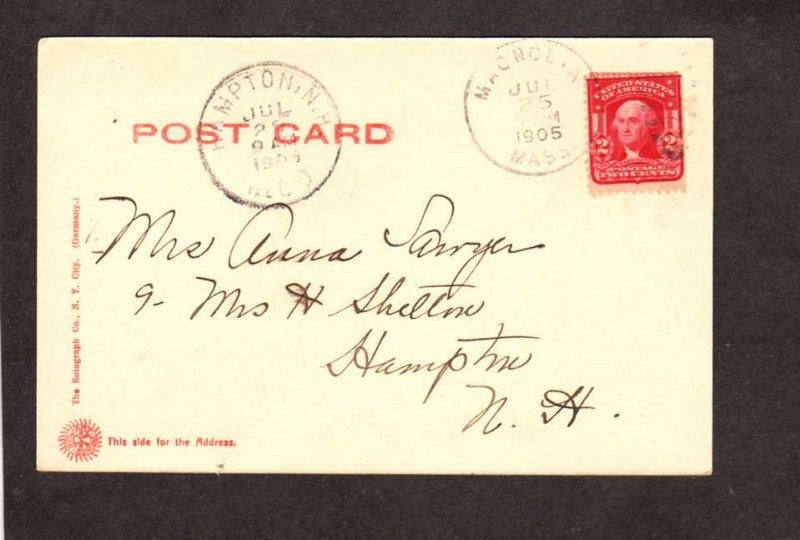 HAMPTON, N.H.
JUL
9 AM
1905
REC'D
MAGNOLIA
JUL
25
M
1905
MASS.
UNITED STATES
OF AMERICA
2 2
POSTAGE
TWO CENTS
POST CARD
Mrs Anna Sawyer
9- Mrs H Shelton
Hampton
N. H.
The Rotograph Co., N. Y. City. (Germany.)
This side for the Address.